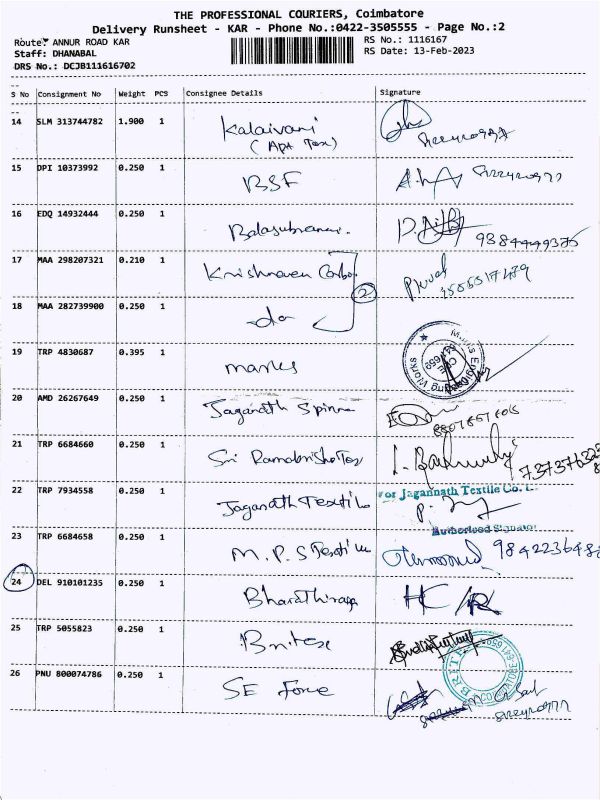 THE PROFESSIONAL COURIERS, Coimbatore
Delivery Runsheet - KAR - Phone No.:0422-3505555 - Page No.:2
Route: ANNUR ROAD KAR
RS No.: 1116167
Staff: DHANABAL
RS Date: 13-Feb-2023
DRS No.: DCJB111616702
S No Consignment No Weight PCS Consignee Details Signature
14 SLM 313744782 1.900 1 Kalaivani
(Apt Tex)
15 DPI 10373992 0.250 1 BSF
16 EDQ 14932444 0.250 1 Balasubramani.
17 MAA 298207321 0.210 1 Krishnaven Carbo
2
18 MAA 282739900 0.250 1 -do-
19 TRP 4830687 0.395 1 marks
20 AMD 26267649 0.250 1 Jaganath Spinn
21 TRP 6684660 0.250 1 Sri Ramakrishna Tex
22 TRP 7934558 0.250 1 Jaganath Textile
For Jagannath Textile Co. L
Authorised Signator
23 TRP 6684658 0.250 1 M.P.S Textile
24 DEL 910101235 0.250 1 Bharathiraja
25 TRP 5055823 0.250 1 Britex
26 PNU 800074786 0.250 1 SE Force